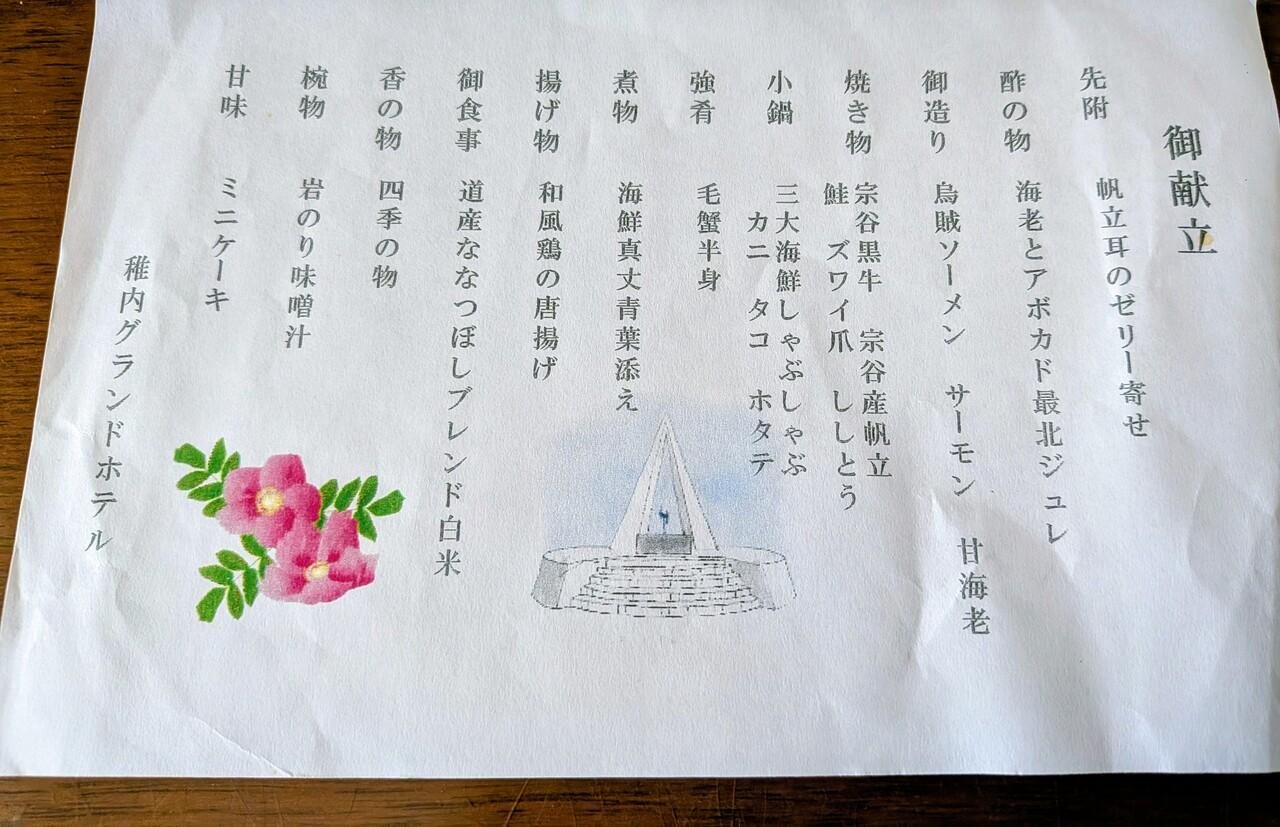 御献立
先附 帆立耳のゼリー寄せ
酢の物 海老とアボカド最北ジュレ
御造り 烏賊ソーメン サーモン 甘海老
焼き物 宗谷黒牛 宗谷産帆立
鮭 ズワイ爪 ししとう
小鍋 三大海鮮しゃぶしゃぶ
カニ タコ ホタテ
強肴 毛蟹半身
煮物 海鮮真丈青葉添え
揚げ物 和風鶏の唐揚げ
御食事 道産ななつぼしブレンド白米
香の物 四季の物
椀物 岩のり味噌汁
甘味 ミニケーキ
稚内グランドホテル